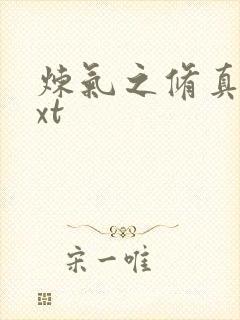 炼氣之脩真
xt
宋一唯